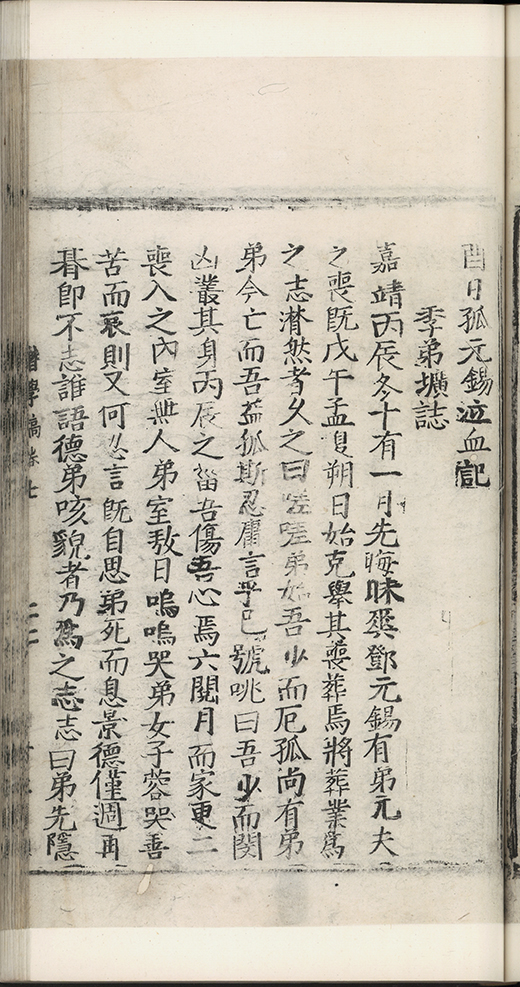 酉日孤元錫泣血記
季弟壙誌
嘉靖丙辰冬十有一月先晦昧爽鄧元錫有弟元夫
之喪既戊午孟夏朔日始克舉其喪葬焉將葬業爲
之志潸然者久之曰嗟嗟弟始吾少而厄孤尚有弟
弟今亡而吾益孤斯忍庸言乎已號咷曰吾少而閔
凶叢其身丙辰之菑吾傷吾心焉六閱月而家更二
喪入之內室無人弟室敖日嗚嗚哭弟女子蓉哭善
苦而哀則又何忍言既自思弟死而息景德僅週再
朞即不志誰語德弟咳貌者乃爲之志志曰弟先隱
潛學稿卷七
二十二